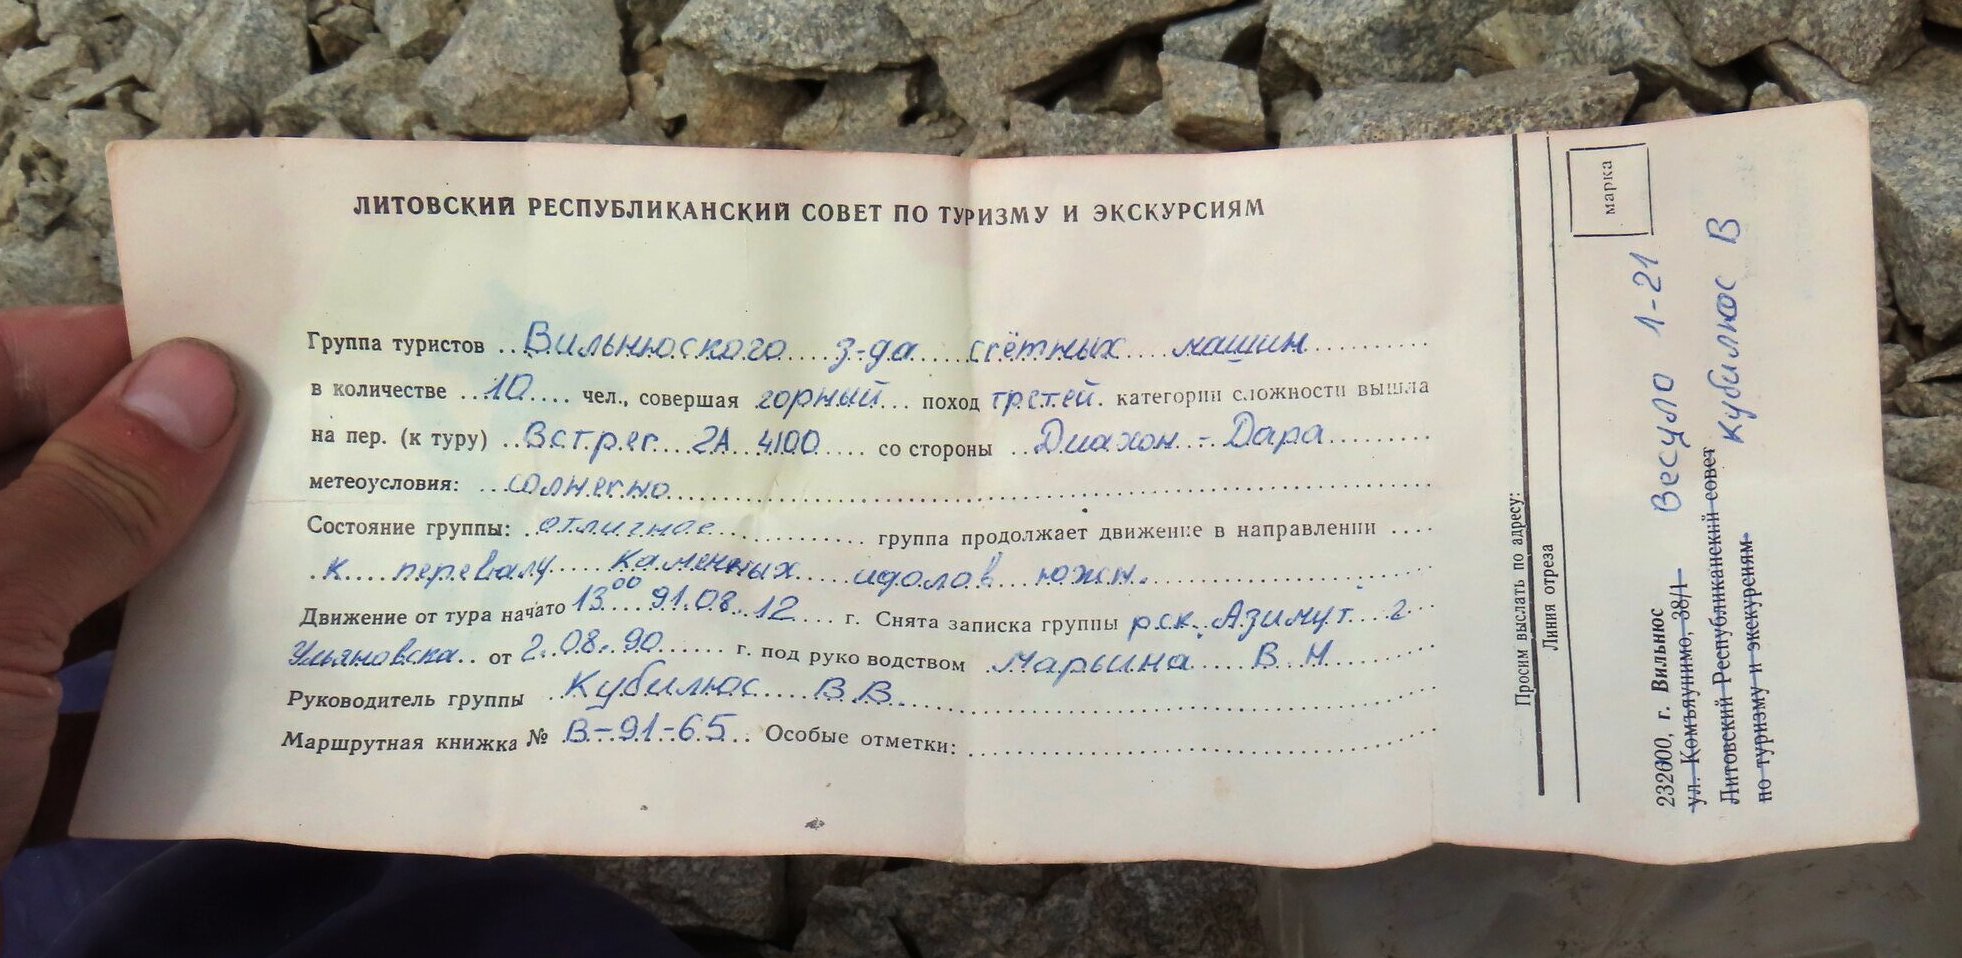 ЛИТОВСКИЙ РЕСПУБЛИКАНСКИЙ СОВЕТ ПО ТУРИЗМУ И ЭКСКУРСИЯМ
Группа туристов Вильнюского з-да счётных машин
в количестве 10 чел., совершая горный поход третей категории сложности вышла
на пер. (к туру) Встреч 2А 4100 со стороны Диахон-Дара
метеоусловия: солнечно
Состояние группы: отличное группа продолжает движение в направлении
к перевалу Каменных идолов южн.
Движение от тура начато 13⁰⁰ 91.08.12 г. Снята записка группы рск Азимут г
Ульяновска от 2.08.90 г. под руководством Марьина В Н
Руководитель группы Кубилюс В.В.
Маршрутная книжка № В-91-65 Особые отметки:
Просим выслать по адресу:
Линия отреза
марка
232000, г. Вильнюс Весуло 1-21
ул. Комъяунимо, 38/1
Литовский Республиканский совет Кубилюс В
по туризму и экскурсиям